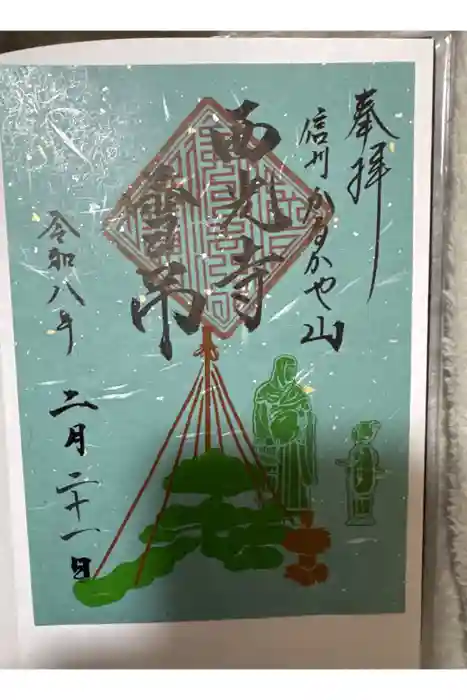 奉拝
信州かるかや山
西光寺
雪吊
令和八年
二月二十一日